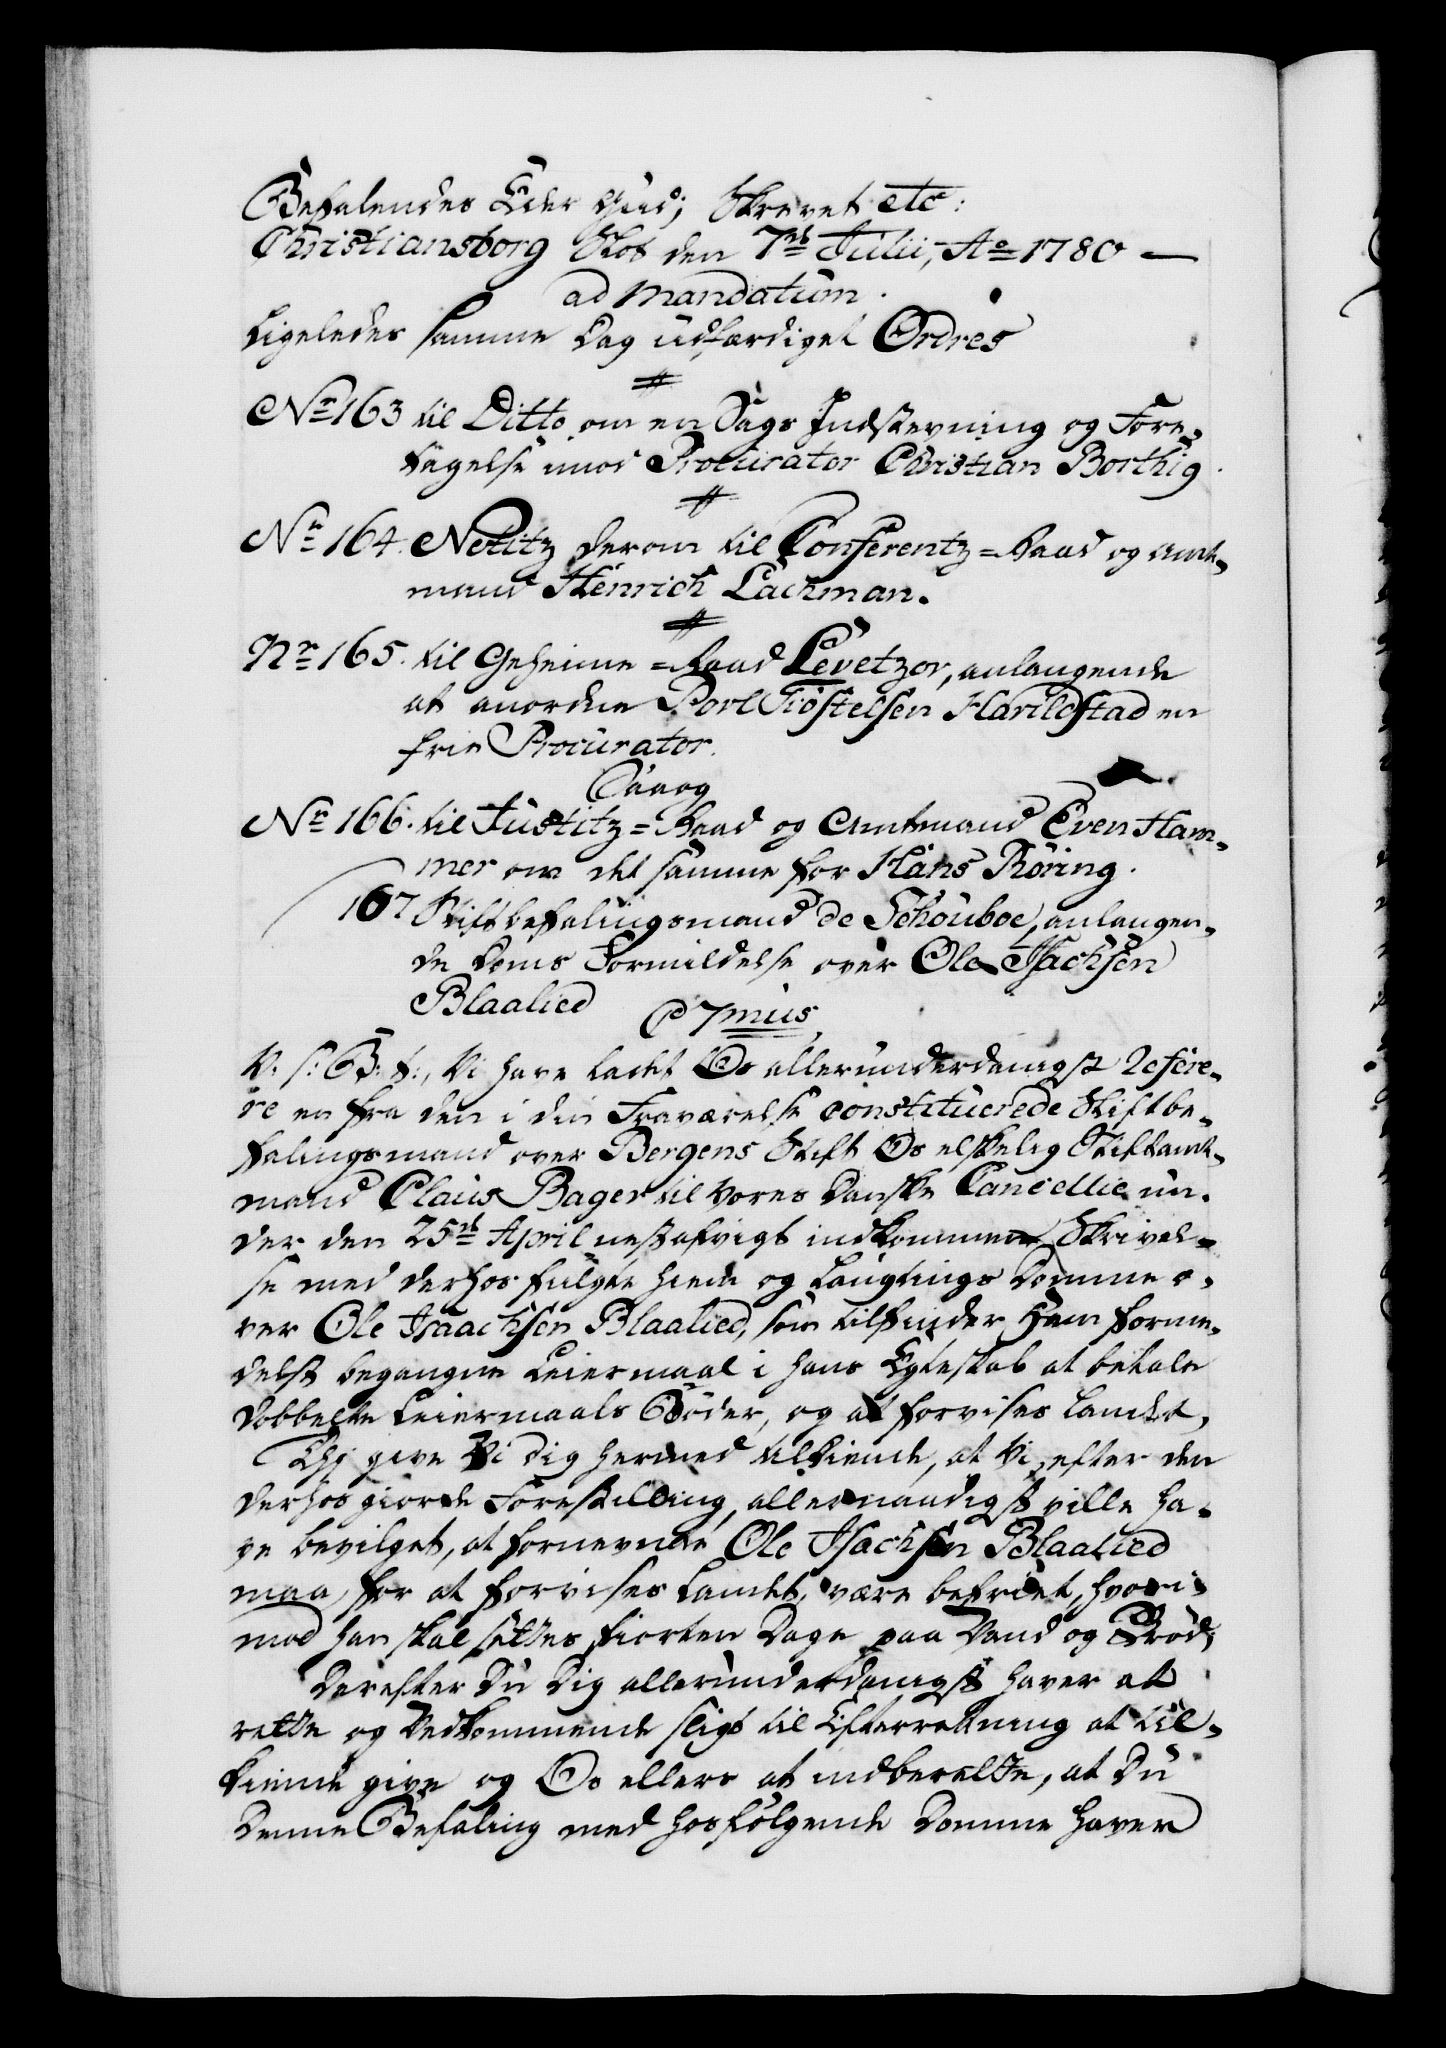 Befalendes Eder Gud; Skrevet etc:
Christiansborg Slot den 7de Julii, Ao 1780 —
ad mandatum.
Ligeledes samme Dag udfærdiget Ordres
Nr 163 til Ditto om en Sags Indstevning og Fore-
tagelse imod Procurator Christian Borthig.
Nr 164. Notitz derom til Conferentz=Raad og Amt-
mand Henrich Lachman.
Nr 165. til Geheime=Raad Levetzov, anlangende
at anordne Poel Tiøstelsen Harildstad en
frie Procurator.
Saaog
Nr 166. til Justitz=Raad og Amtmand Even Ham-
mer om det samme for Hans Røring.
167 Stiftbefalingsmand de Schouboe, anlangen-
de Doms Formildelse over Ole Isachsen
Blaalied
P 7mus
V: s: G: t:, Vi have ladet Os allerunderdanigst refere-
re en fra den i din Fraværelse constituerede Stiftbe-
falingsmand over Bergens Stift Os elskelig Stiftamt-
mand Claus Bager til vores Danske Cancellie un-
der den 25de April nestafvigt indkommen Skrivel-
se med derhos fulgte Hiem og Laugtings Domme o-
ver Ole Isaachsen Blaalied, som tilfinder ham forme-
delst begangne Leiermaal i hans Egteskab at betale
dobbelte Leiermaals Bøder, og at forvises Landet,
Thi give Vi dig hermed tilkiende, at Vi, efter den
derhos giorde Forestilling, allernaadigst ville ha-
ve bevilget, at fornevnte Ole Isachsen Blaalied
maa for at forvises Landet, være befriet, hvori-
mod han skal sættes fiorten Dage paa Vand og Brød;
Derefter Du dig allerunderdanigst haver at
rette og Vedkommende sligt til Efterretning at til-
kiende give og Os ellers at indberette, at Du
denne Befaling med hosfølgende Domme haver